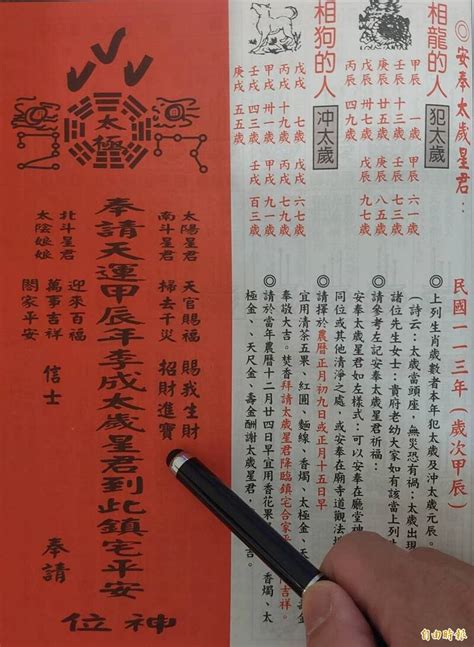 ◎安奉太歲星君:
相龍的人
犯太歲
甲辰 一歲 甲辰 六一歲
壬辰 十三歲 壬辰 七三歲
庚辰 廿五歲 庚辰 八五歲
戊辰 卅七歲 戊辰 九七歲
丙辰 四九歲
相狗的人
沖太歲
戊戌 七歲 戊戌 六七歲
丙戌 十九歲 丙戌 七九歲
甲戌 卅一歲 甲戌 九一歲
壬戌 四三歲 壬戌 百三歲
庚戌 五五歲
民國一一三年(歲次甲辰)
◎上列生肖歲數者本年犯太歲及沖太歲元辰。
(詩云:太歲當頭座,無災恐有禍;太歲出現
諸位先生女士:貴府老幼大家如有該當上列
◎請參考左記安奉太歲星君祈福:
安奉太歲星君如左樣式:可以安奉在廳堂神
同位或其他清淨之處,或安奉在廟寺道觀法
◎請擇於農曆正月初九日或正月十五日早
宜用清茶五果、紅圓、麵線、香燭、太極金、天
奉敬大吉。焚香拜請太歲星君降臨鎮宅合家平 吉祥。
◎請於當年農曆十二月廿四日早宜用香花果 香燭、太
極金、天尺金、壽金酬謝太歲星君, 吉。
太極
太陽星君 天官賜福 賜我生財
南斗星君 掃去千災 招財進寶
奉請天運甲辰年李成太歲星君到此鎮宅平安
北斗星君 迎來百福
太陰娘娘 萬事吉祥
閤家平安
信士 奉請
神位
自由時報